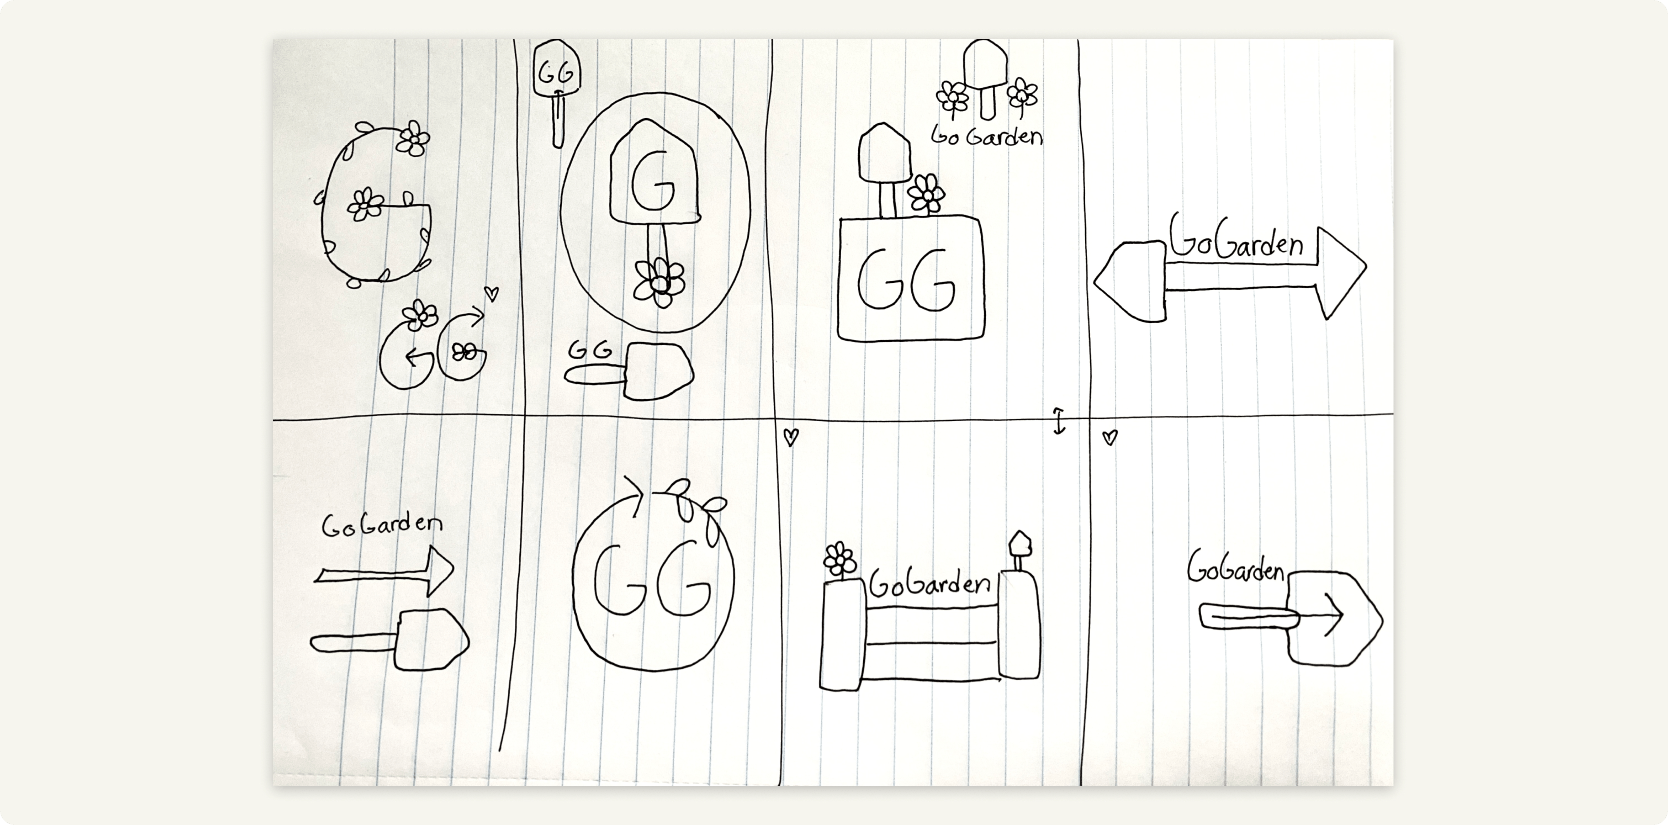 G
GG
GG
G
GG
Go Garden
GG
GoGarden
GoGarden
GG
GoGarden
GoGarden